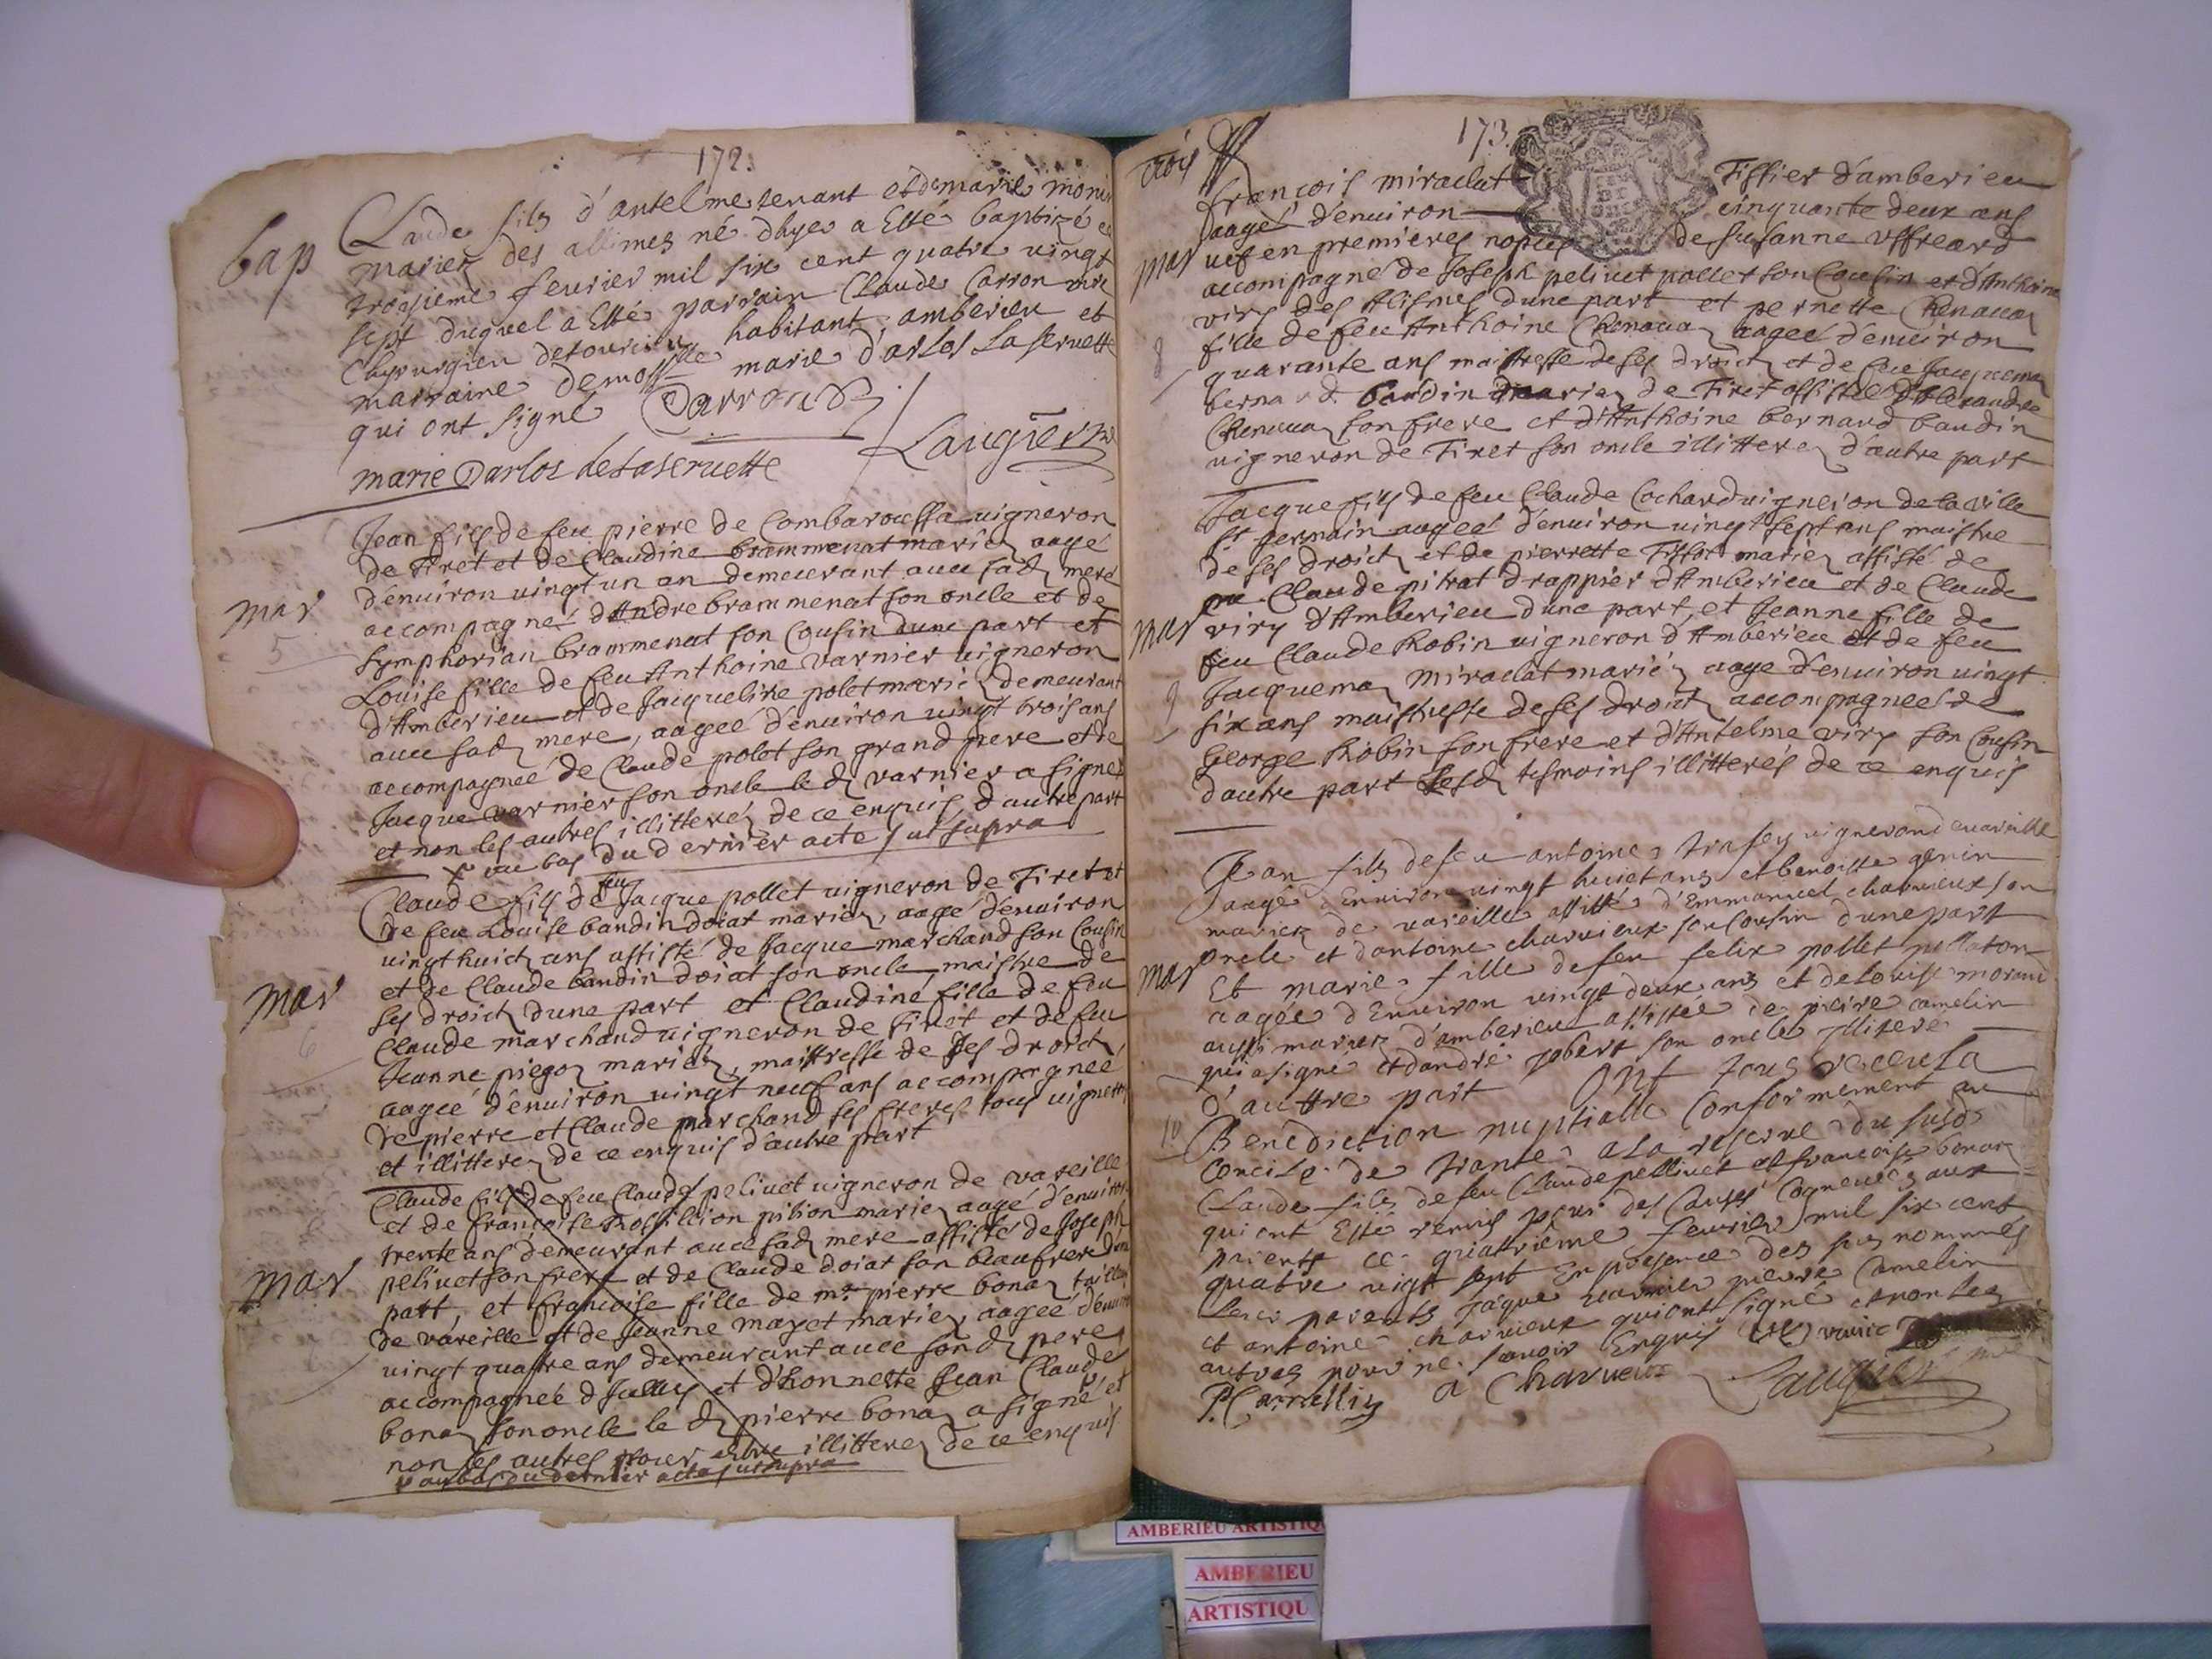 172
bap
Claude fils d'antelme tenant et de marie monin
mariez des allimes né d'hyer a Esté baptizé ce
troisieme feurier mil six cent quatre vingt
sept duquel a Esté parrain Claude Carron mre
Chyrurgien de habitant amberieu et
marraine demosselle marie d'arlos La seruette
qui ont signé Carron
Laugier
marie Darlos de la seruette
mar
5
Jean fils de feu pierre de Combarouffa vigneron
de Tiret et de Claudine brammenat mariez aagé
d'enuiron vingt un an demeurant auec sad mere
accompagné d'Andre brammenat son oncle et de
symphorian brammenat son Cousin dune part et
Louise fille de feu Anthoine varnier vigneron
d'Amberieu et de Jacqueline polet mariez demeurant
auec sad mere, aageé d'enuiron vingt trois ans
accompagneé de Claude polet son grand pere et de
Jacque varnier son oncle le d varnier a signé
et non les autres illitterez de ce enquis d'autre part
au bas du dernier acte ut supra
mar
6
Claude fils de feu Jacque pollet vigneron de Tiret et
de feu Louise baudin doiat mariez, aagé d'enuiron
vingt huict ans assisté de Jacque marchand son Cousin
et de Claude baudin doiat son oncle maistre de
ses droictz dune part et Claudine fille de feu
Claude marchand vigneron de Tiret et de feu
Jeanne piegoz mariez, maistresse de ses droictz
aageé d'enuiron vingt neuf ans accompagneé
de pierre et Claude marchand ses freres tous vignerons
et illitterez de ce enquis d'autre part
mar
Claude fils de feu Claude peliuet vigneron de vareille
et de françoise rossillion pilion mariez aagé d'enuiron
trente ans demeurant auec sad mere assisté de Joseph
peliuet son frere et de Claude doiat son beaufrere dune
part, et françoise fille de me pierre bonaz tailleur
de vareille et de Jeanne mayet mariez, aageé d'enuiron
vingt quatre ans demeurant auec son d pere
accompagneé d'Jcelluy et d'honneste Jean Claude
bonaz son oncle le d pierre bonaz a signé et
non les autres pour estre illitterez de ce enquis
au bas du dernier acte ut supra
173
trois
mar
8
françois miraclat Tissier d'amberieu
aagé d'enuiron cinquante deux ans
uef en premieres nopces de susanne uffreard
accompagné de Joseph peliuet pollet son Cousin et d'Anthoine
viry des Alismes dune part et pernette Chenauaz
fille de feu Anthoine Chenauaz aageé d'enuiron
quarante ans maistresse de ses droictz et de feu Jacquemaz
bernard baudin mariez de Tiret assisteé d'Alexandre
Chenauaz son frere et d'Anthoine bernard baudin
vigneron de Tiret son oncle illitterez d'autre part
mar
9
Jacque fils de feu Claude Cochard vigneron de la ville
st germain aageé d'enuiron vingt sept ans maistre
de ses droictz et de pierrette Tissot mariez assisté de
Claude pitrat drappier d'Amberieu et de Claude
viry d'Amberieu dune part, et Jeanne fille de
feu Claude Robin vigneron d'Amberieu et de feu
Jacquemaz miraclat mariez aagé d'enuiron vingt
six ans maistresse de ses droictz accompagneé de
George Robin son frere et d'Antelme viry son Cousin
d'autre part lesd tesmoins illitterés de ce enquis
mar
10
Jean fils de feu antoine vigneron de vareille
aagé d'enuiron vingt huict ans et benoitte genin
mariez de vareille assisté d'Emmanuel charuieux son
oncle et d'antoine charuieux son Cousin dune part
Et marie fille de feu felix pollet
aagée d'Enuiron vingt deux ans et de Louise
aussi mariez d'amberieu assistée de pierre camelin
qui a signé et d'andré jobert son oncle illiteré
d'auttre part ont tous receu La
Benediction nuptialle Conformement au
Concile de trante a la reserve du susd
Claude fils de feu Claude pelliuet et françoise bonaz
qui ont Esté renuis pour des Causes Cogneues aux
parients ce quattrieme feurier mil six cent
quatre vigt sept En presence des sus nommes
leurs parents Jaque varnier pierre Camelin
et antoine charuieux qui ont signé et non les
autres pour ne sauoir Enquis
P Camellin a Charueux Laugier
AMBERIEU ARTISTIQU
AMBERIEU
ARTISTIQU